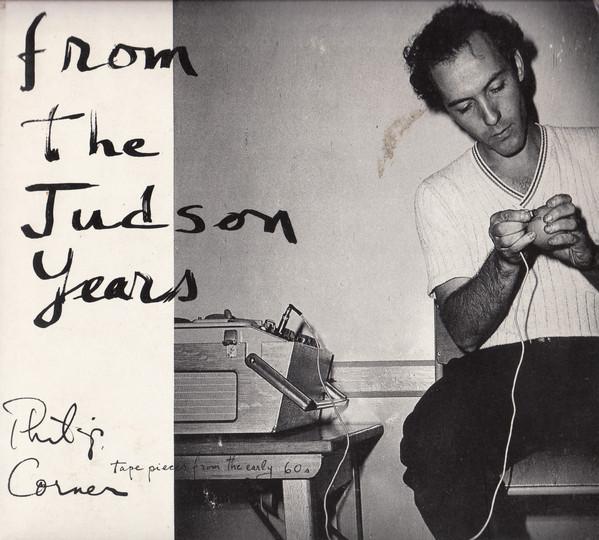 from
The
Judson
Years
Philip
Corner
tape pieces from the early 60s